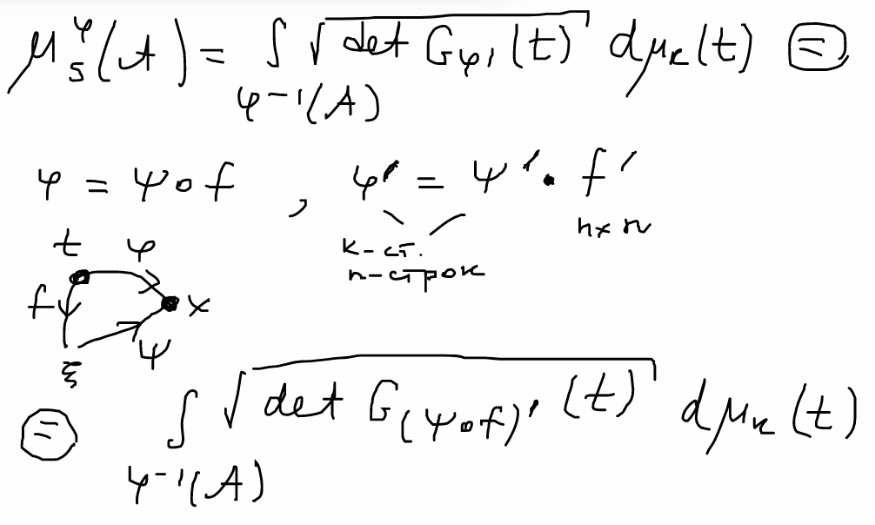 μ_S^φ(A) = ∫_{φ⁻¹(A)} √(det G_{φ'}(t)) dμ_k(t) ⊜
φ = ψ∘f , φ' = ψ' · f'
к-ст. n×n
n-строк
t φ
f x
ξ ψ
⊜ ∫_{φ⁻¹(A)} √(det G_{(ψ∘f)'}(t)) dμ_k(t)